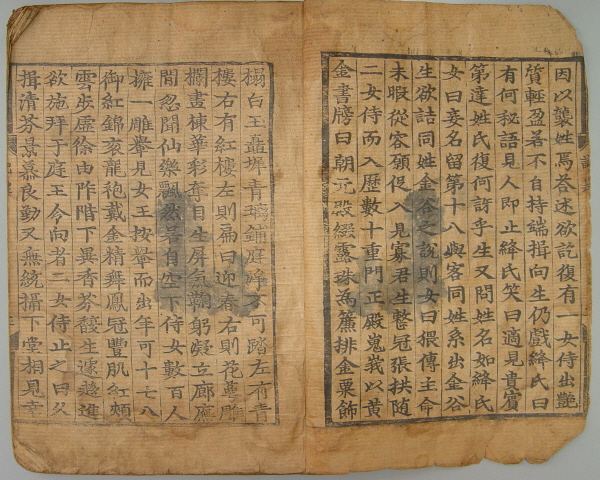 因以襲姓焉答述欲訖復有一女侍出艷
質輕盈若不自持端揖向生仍戲絳氏曰
有何秘語見人即止絳氏笑曰適見貴賓
第達姓氏復何訝乎生又問姓名如絳氏
女曰妾名留第十八與客同姓系出金谷
生欲詰同姓金谷之說則女曰猥傳主命
未暇從容願促入見寡君生整冠張拱隨
二女侍而入歷數十重門正殿嵬峩以黄
金書牓曰朝元殿綴露珠為簾排金粟飾
榻白玉矗墀青鋪庭不可踏左有青
樓右有紅樓左則扁曰迎春右則花萼雕
欄畫棟華彩奪目生屏氣鞠躬凝立廊廡
間忽聞仙樂飄然若自空下侍女數百人
擁一雕轝見女王按轝而出年可十七八
御紅錦衮龍袍戴金精舞鳳冠豐肌紅頰
雲步虛徐由阼階下異香芬馥生遽趨進
欲施拜于庭王令向者二女侍止之曰久
揖清芬景慕良勤又無統攝下堂相見幸